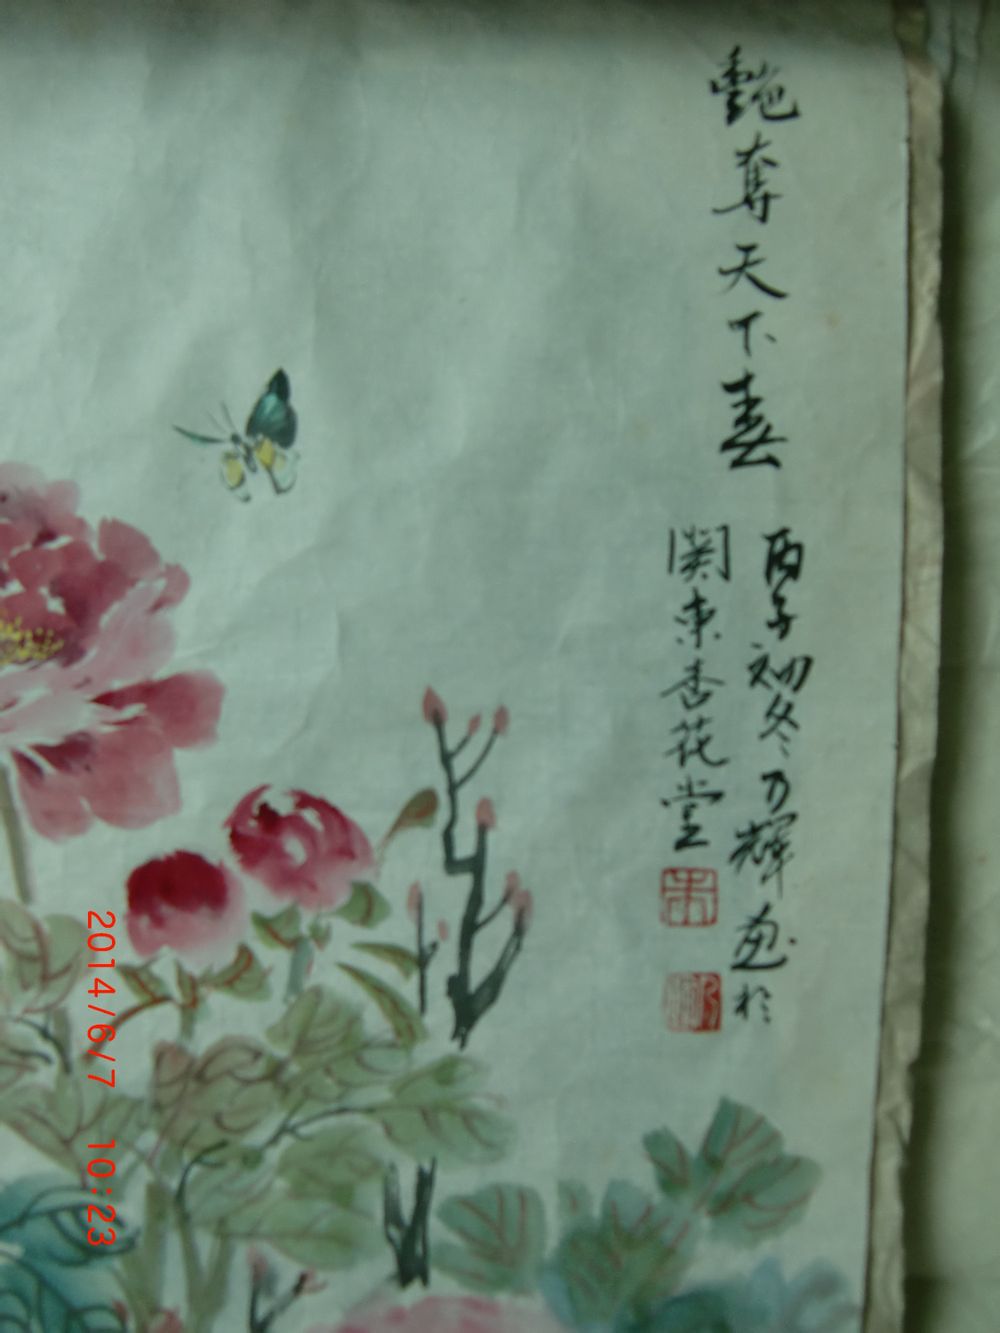 艷奪天下春
丙子初冬乃輝画於
関東杏花堂
朱
2014/6/7 10:23